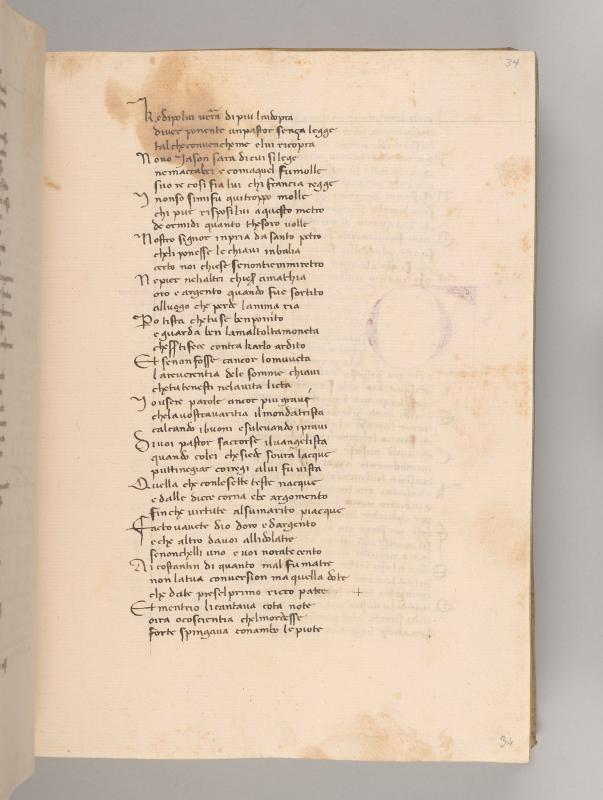 34
K edipo lui verra di piu laidopra
diver ponente un pastor senza legge
tal che convenche me e lui ricopra
N ovo Jason sara di cui si lege
ne maccabei e comaquel fu molle
suo re cosi fia lui chi francia regge
I nonso simi fu qui troppo molle
chi pur risposi lui a questo metro
de or midi quanto thesoro volle
Nostro signor in pria da santo petro
cheli ponesse le chiavi in balia
certo non chiese senon tievimi retro
Ne pier ne li altri chies a mathia
oro e argento quando fue sortito
alluogo che perde lanima ria
Po ti sta che tu se ben ponito
e guarda ben la mal tolta moneta
chesser ti fece contra karlo ardito
Et se non fosse cancor lo mi vieta
la reverentia dele somme chiavi
che tu tenesti nela vita lieta
Io usere parole ancor piu grave
che la vostra varitia il mondatrista
calcando i buoni e sulevando i pravi
Di voi pastor saccorse il vangelista
quando colei che siede soura lacque
puttinegiar coi regi a lui fu vista
Quella che con le sette teste nacque
e dalle diece corna ebe argomento
fin che virtute al su marito piacque
Facto vavete dio doro e dargento
e che altro da voi alli dolatre
se non chelli uno e voi norate cento
Ai costantin di quanto mal fu matre
non la tua conversion ma quella dote
che date prese l primo ricco patre
Et mentrio li cantava cota note
o ira o coscientia chel mordesse
forte spingava conambo le piote
34